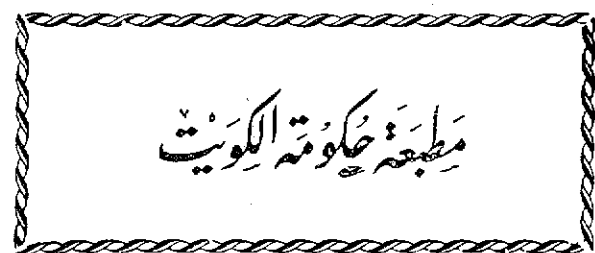 مَطبَعَة حُكُومَة الكِوَيْت